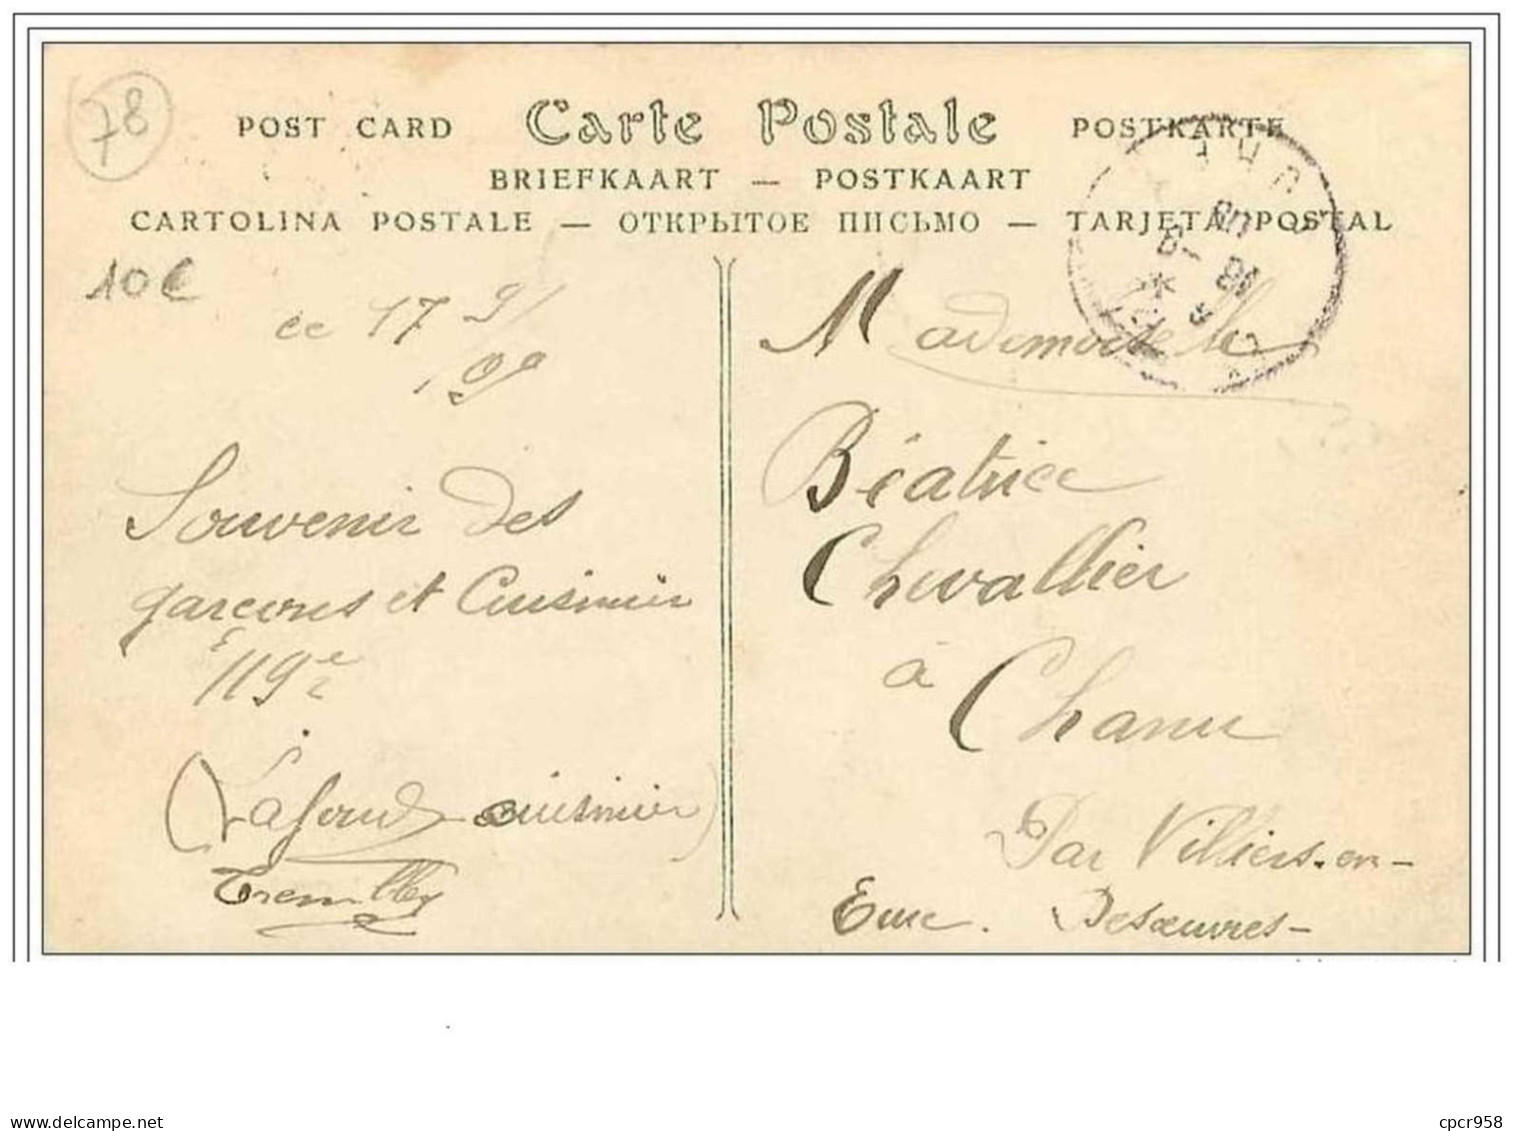 78
POST CARD Carte Postale POSTKARTE
BRIEFKAART — POSTKAART
CARTOLINA POSTALE — ОТКРЫТОЕ ПИСЬМО — TARJETA POSTAL
10€
ce 17 9/
/09
Souvenir des
garçons et Cuisinier
119e
(Lafond cuisinier)
Trembley
Mademoiselle
Béatrice
Chevallier
à
Chanu
Par Villiers-en-
Desœuvres-
Eure.
delcampe.net
cpcr958